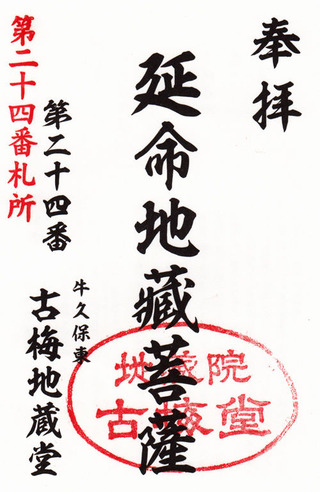 奉拝
延命地藏菩薩
地蔵院
古梅堂
牛久保東
古梅地蔵堂
第二十四番
第二十四番札所